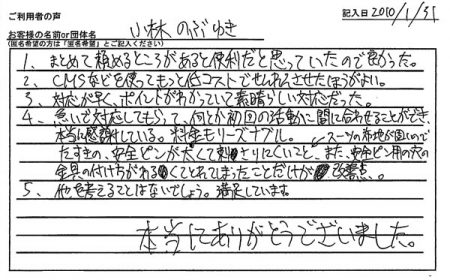 ご利用者の声
記入日 2010/1/31
お客様の名前or団体名 小林 のぶゆき
(匿名希望の方は「匿名希望」とご記入ください)
1、まとめて頼めるところがあると便利だと思っていたので良かった。
2、CMSなどを使ってもっと低コストでせんれんさせたほうがよい。
3、対応が早く、ポイントがわかっていて素晴らしい対応だった。
4、急いで対応してもらって、何とか初回の活動に間に合わせることができ、
本当に感謝している。料金もリーズナブル。 スーツの布地が固いので
たすきの、安全ピンが太くて刺さりにくいこと、また、安全ピン用の穴の
金具の付けちがるくことれてしまったことだけが改善点。
5、他を考えることはないでしょう。満足しています。
本当にありがとうございました。